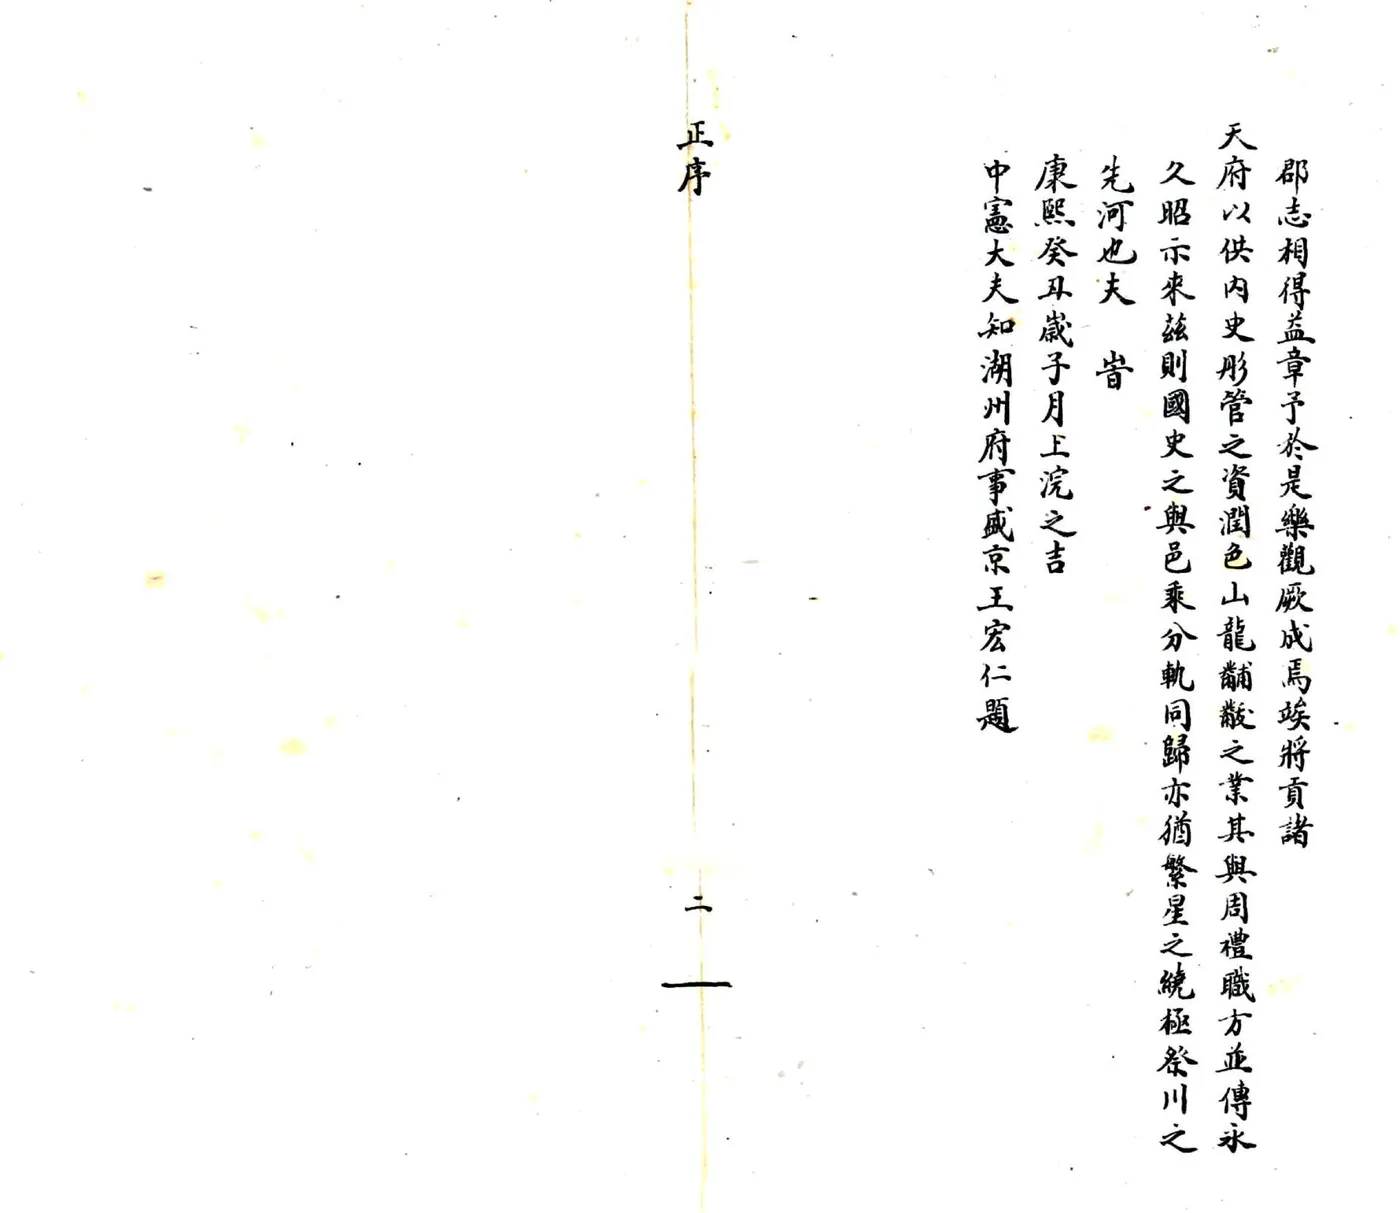 郡志相得益章予於是樂觀厥成焉竢將貢諸
天府以供內史彤管之資潤色山龍黼黻之業其與周禮職方並傳永
久昭示來茲則國史之與邑乘分軌同歸亦猶繁星之繞極祭川之
先河也夫　旹
康熙癸丑歲子月上浣之吉
中憲大夫知湖州府事盛京王宏仁題
正序
二